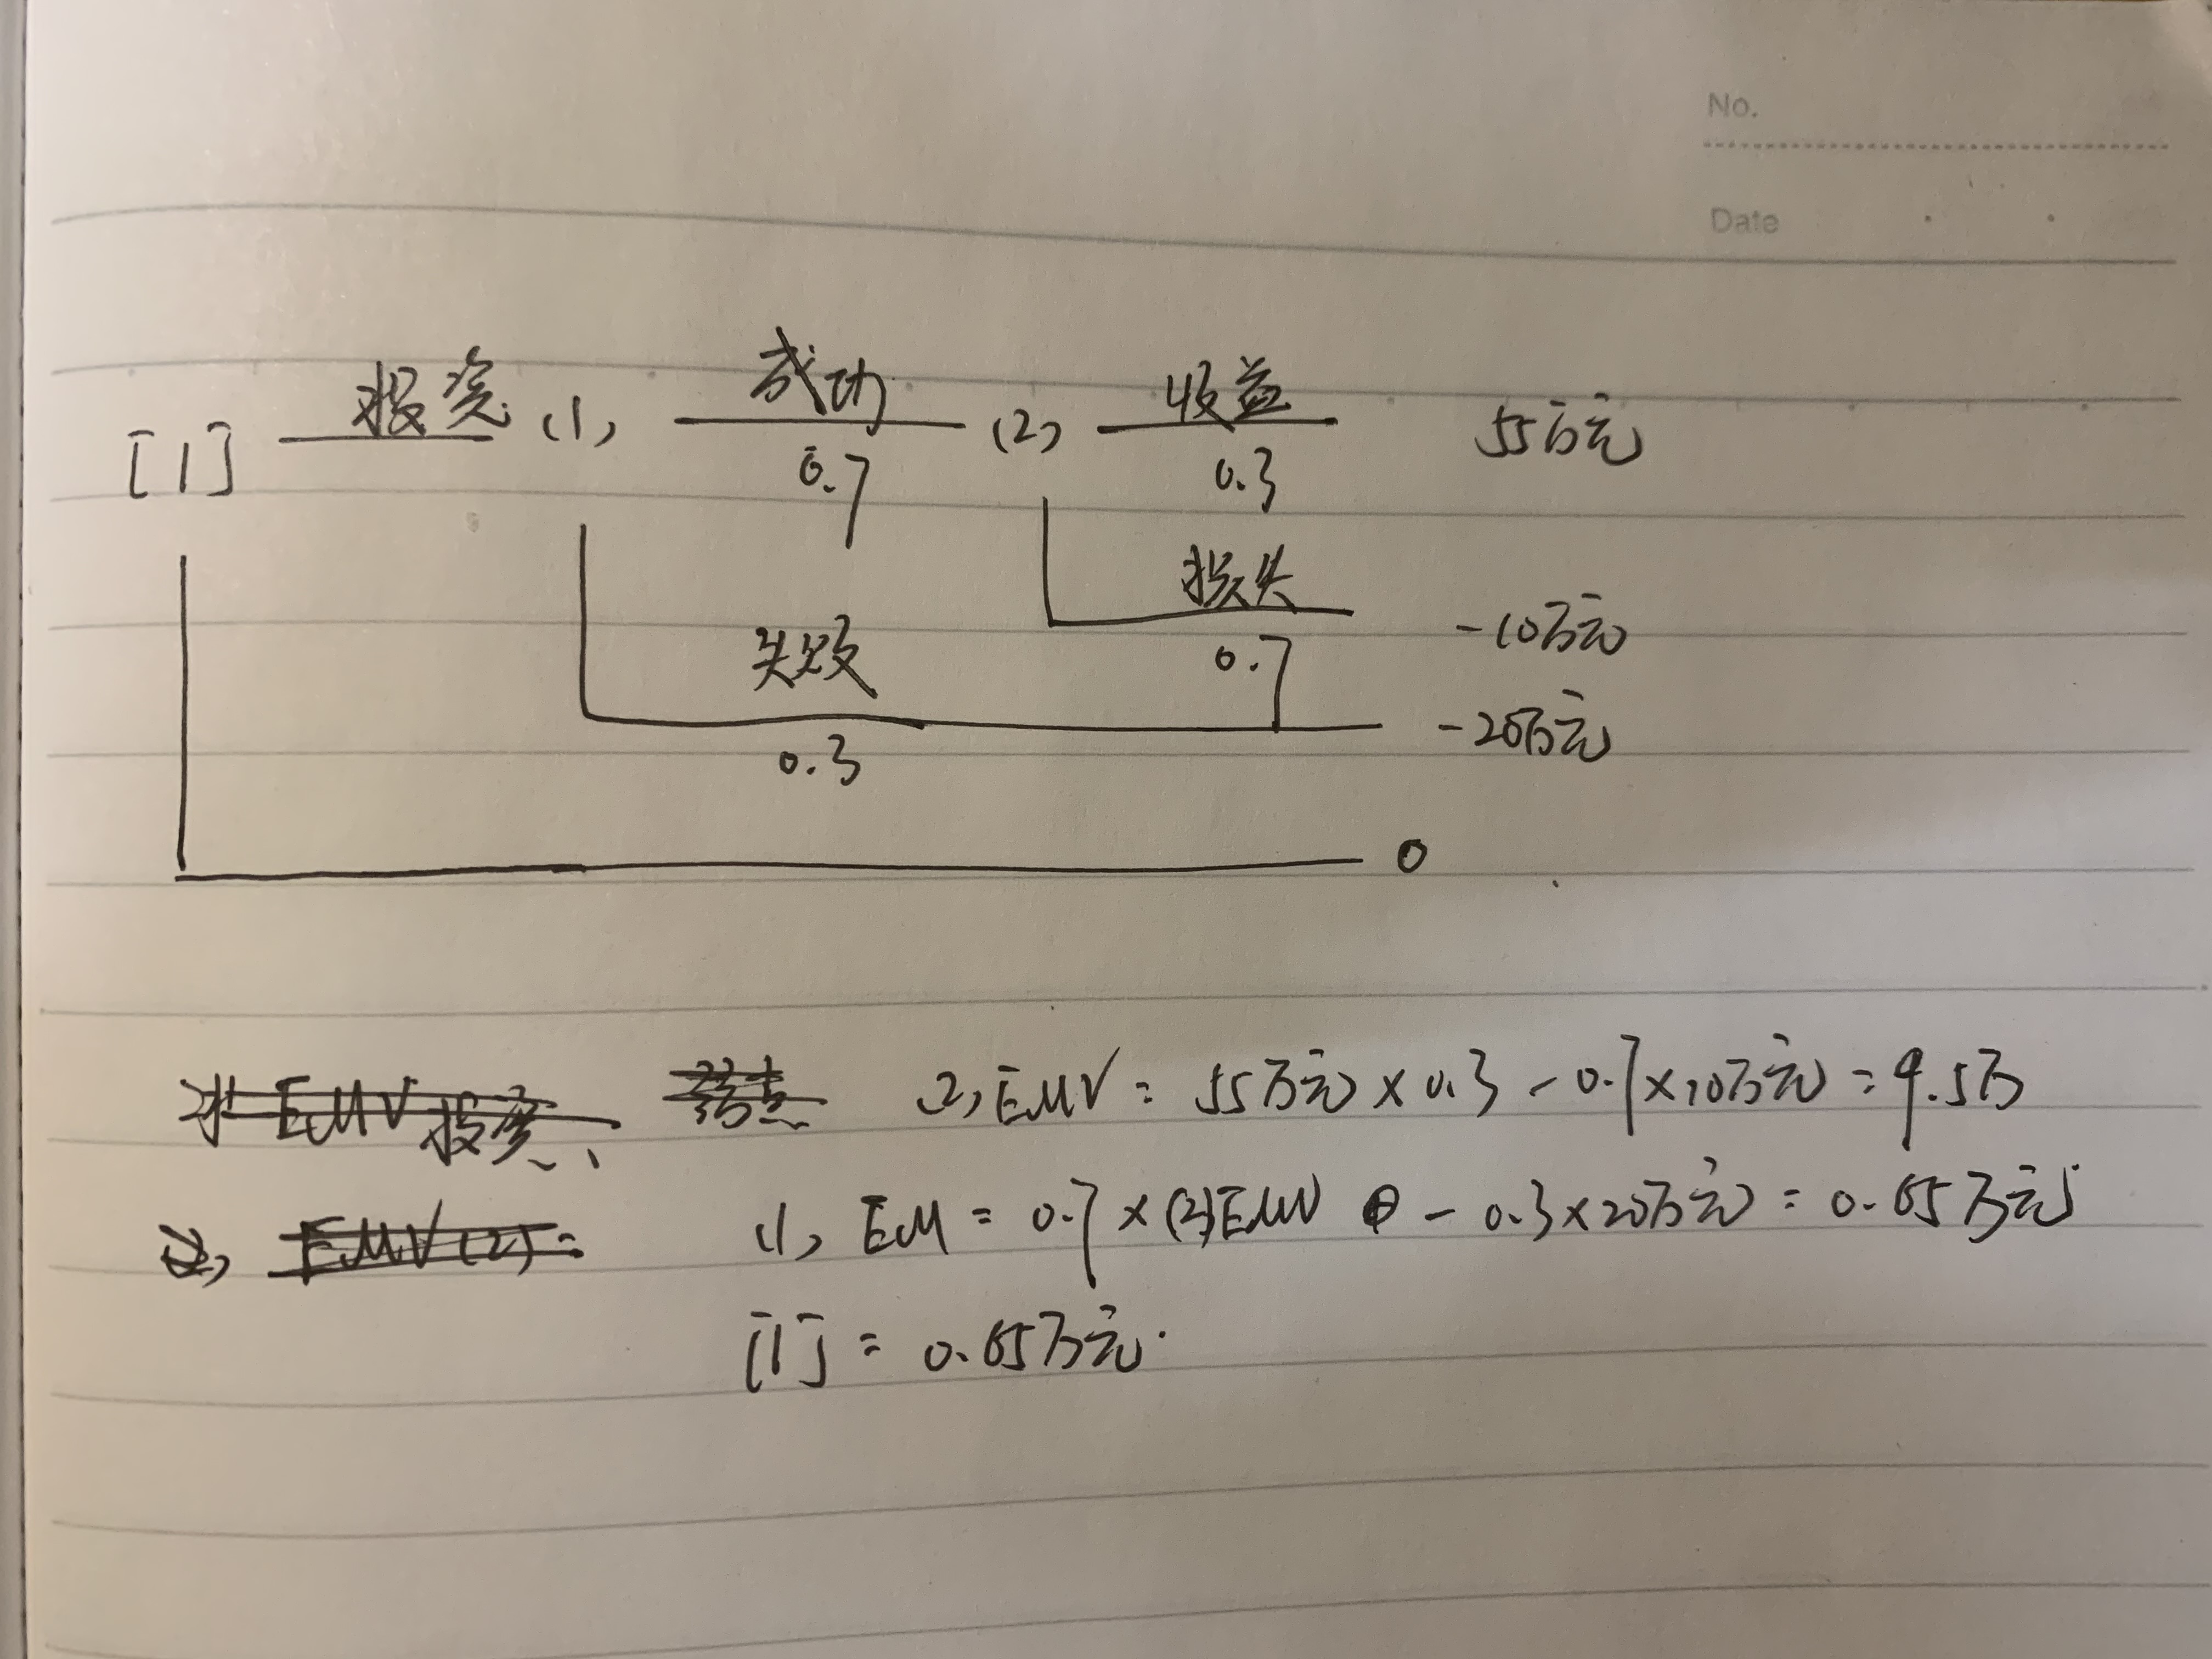 No.
Date
[1] 投资 (1) 成功 (2) 收益 55万元
0.7 0.3
损失 -10万元
失败 0.7
-20万元
0.3
0
求EMV投资、 结点 (2) EMV = 55万元 × 0.3 - 0.7×10万元 = 9.5万
(2) EMV(2) = (1) EM = 0.7 × (2)EMV - 0.3×20万元 = 0.65万元
[1] = 0.65万元.